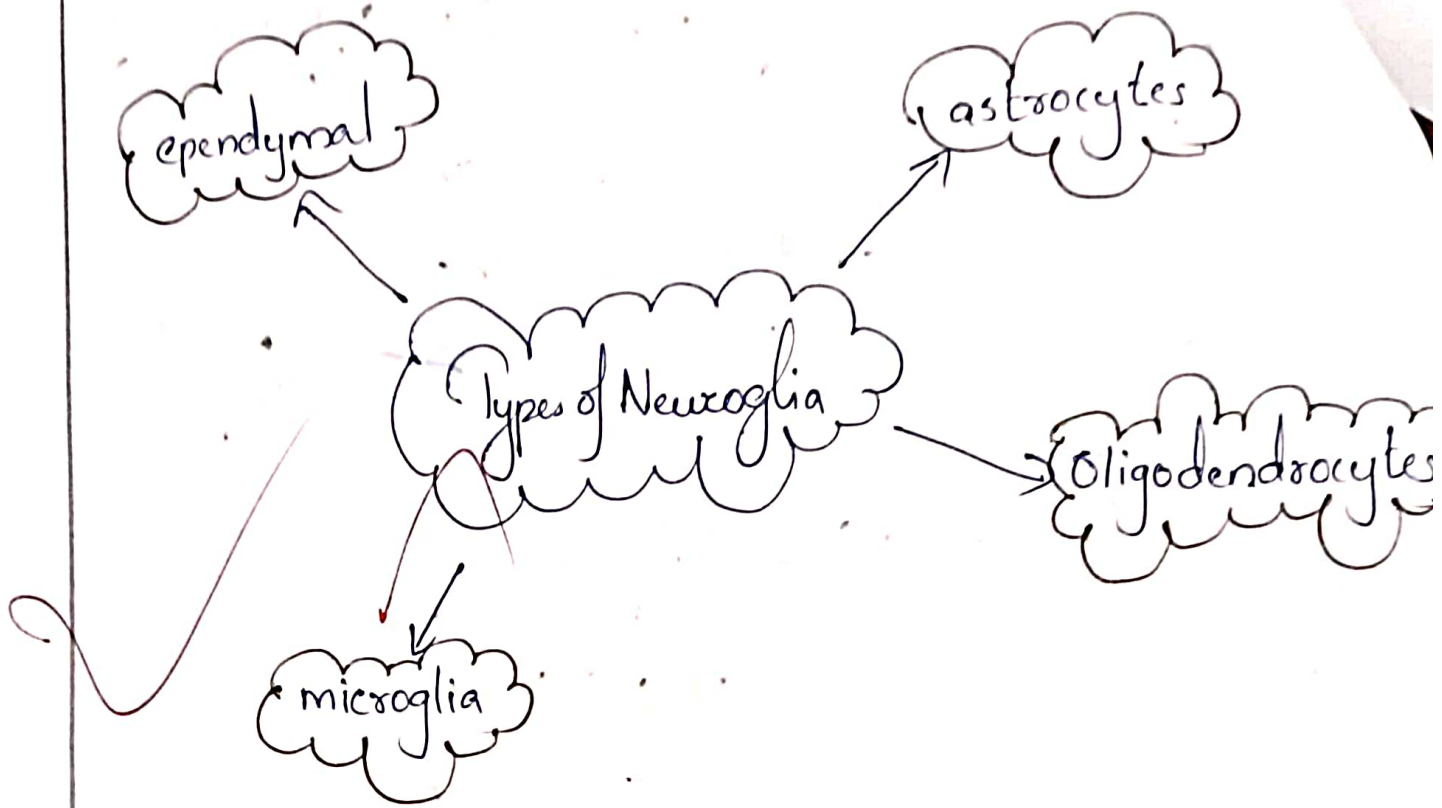 ependymal
astrocytes
Types of Neuroglia
Oligodendrocytes
microglia